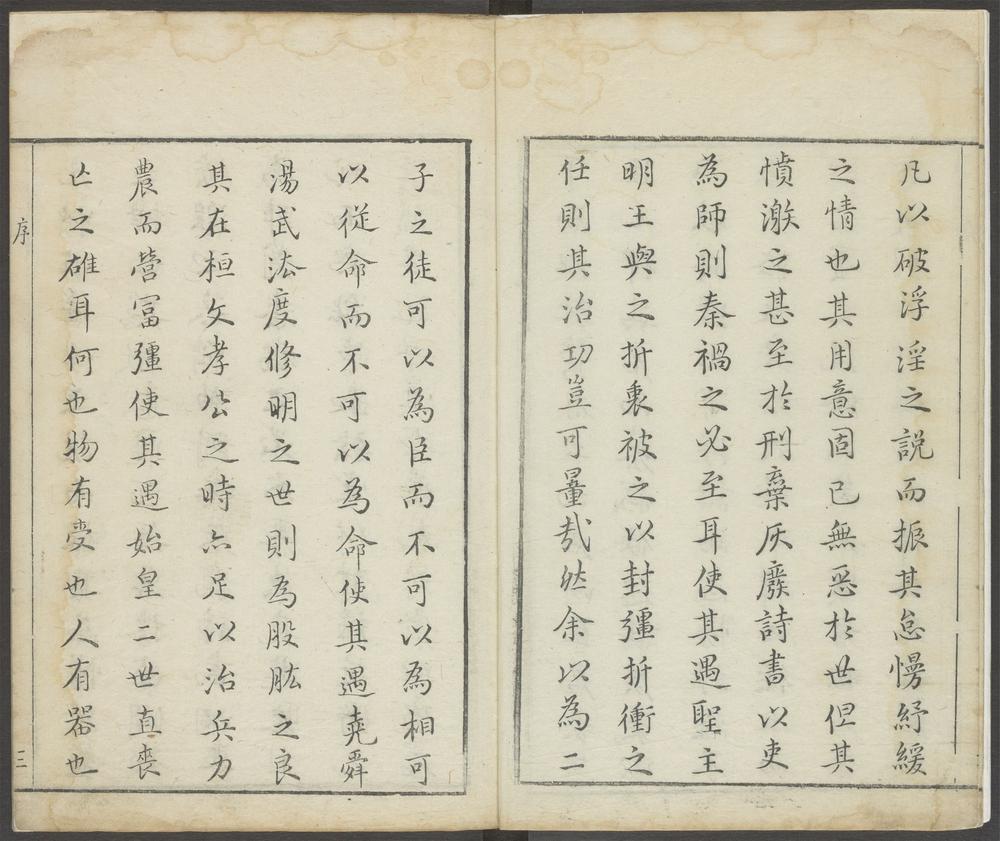 凡以破浮淫之説而振其怠慢紓緩
之情也其用意固已無惡於世但其
憤激之甚至於刑棄灰廢詩書以吏
為師則秦禍之必至耳使其遇聖主
明王與之折衷被之以封彊折衝之
任則其治功豈可量哉然余以為二
子之徒可以為臣而不可以為相可
以從命而不可以為命使其遇堯舜
湯武法度修明之世則為股肱之良
其在桓文孝公之時亦足以治兵力
農而營冨彊使其遇始皇二世直喪
亡之雄耳何也物有受也人有器也
序
三